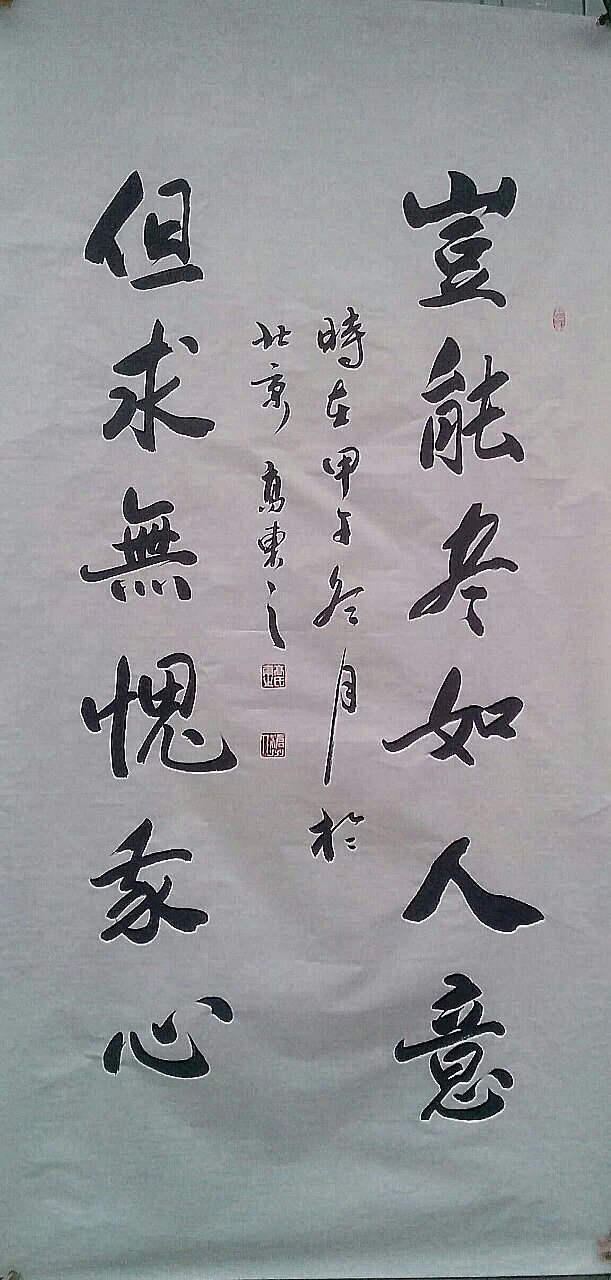 豈能尽如人意
但求無愧我心
時在甲午冬月於
北京 高東之